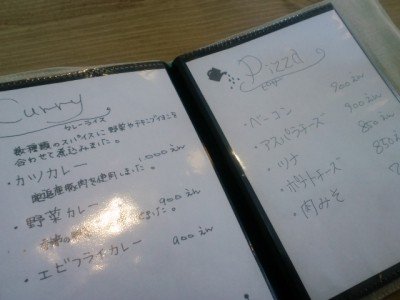 Curry
カレーライス
数種類のスパイスに野菜やチキンブイヨンを
合わせて煮込みました。
・カツカレー 1000えん
豚肉を使用しました。
・野菜カレー 900えん
・エビフライカレー 900えん
Pizza
ピザ
・ベーコン 900えん
・アスパラチーズ 900えん
・ツナ 850えん
・ポテトチーズ 850え
・肉みそ